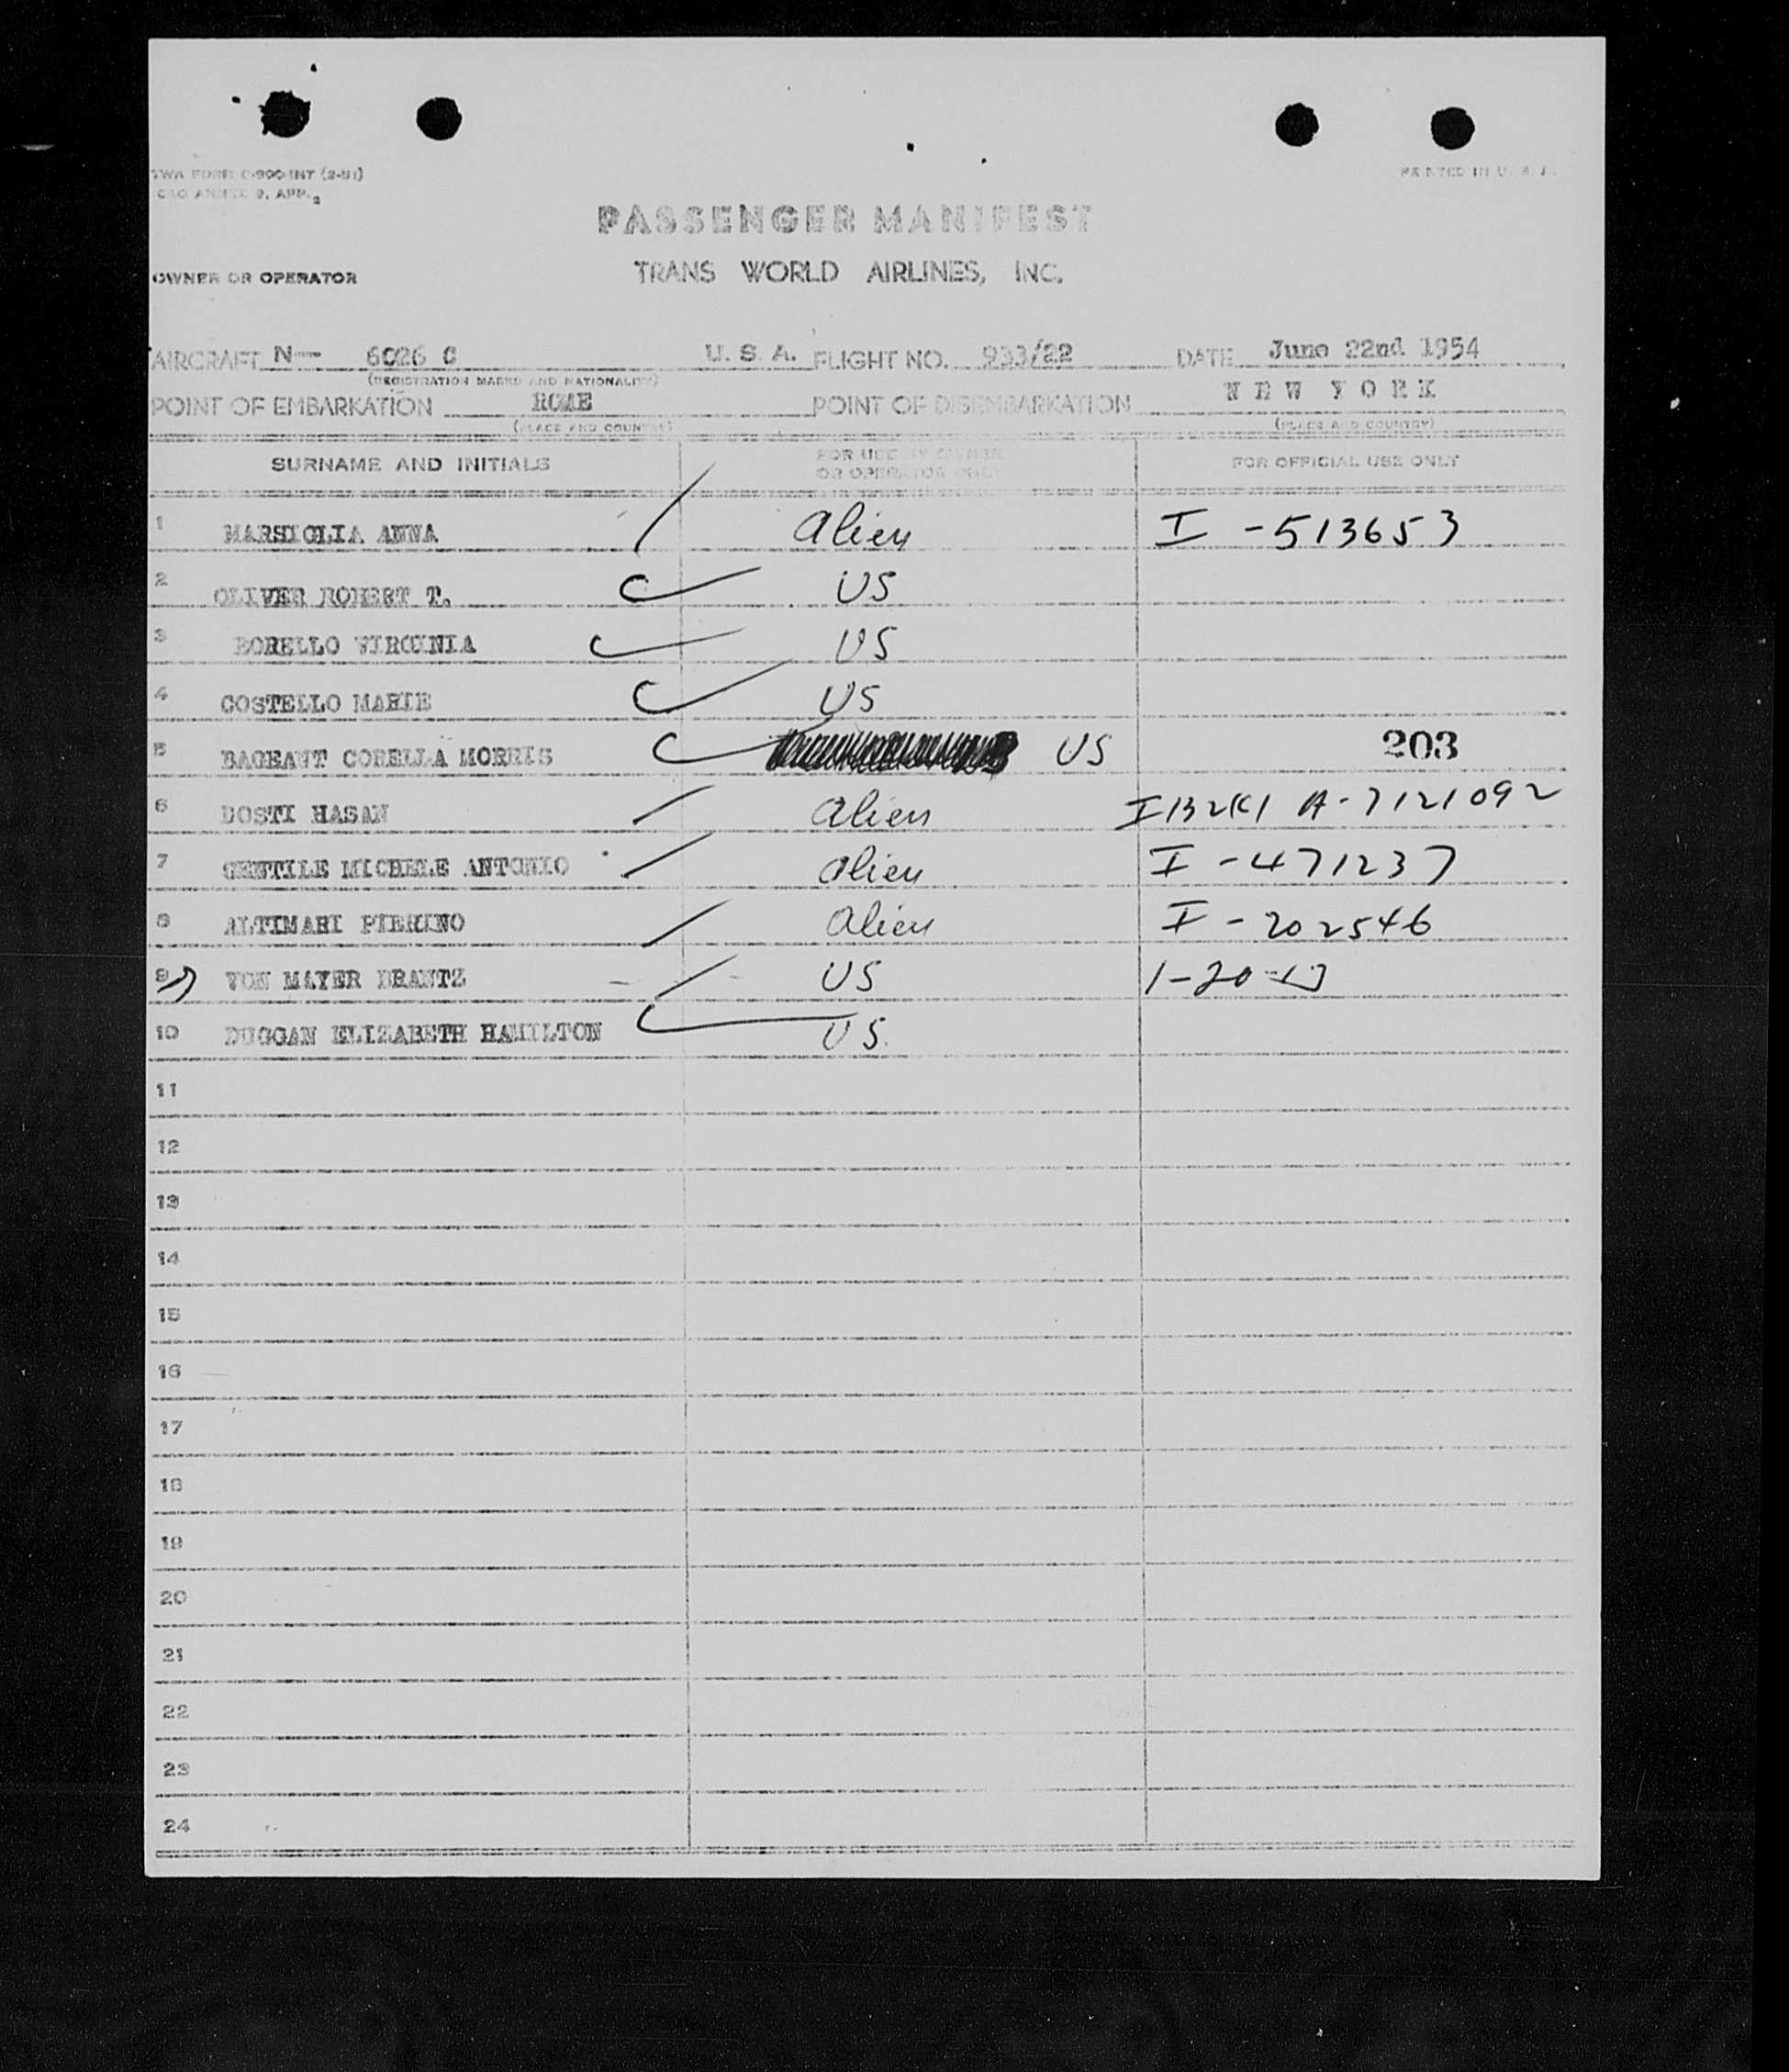 TWA FORM C-900-INT (2-51)
ICAO ANNEX 9, APP. 2
PRINTED IN U. S. A.
PASSENGER MANIFEST
OWNER OR OPERATOR TRANS WORLD AIRLINES, INC.
AIRCRAFT N— 6026 C U. S. A. FLIGHT NO. 933/22 DATE June 22nd 1954
(REGISTRATION MARKS AND NATIONALITY)
POINT OF EMBARKATION ROME POINT OF DISEMBARKATION NEW YORK
(PLACE AND COUNTRY) (PLACE AND COUNTRY)
SURNAME AND INITIALS FOR USE BY OWNER OR OPERATOR ONLY FOR OFFICIAL USE ONLY
1 MARSIGLIA ANNA Alien I -513653
2 OLIVER ROBERT T. US
3 BORELLO VIRGINIA US
4 COSTELLO MARIE US
5 BAGEANT CORELLA MORRIS US 203
6 DOSTI HASAN Alien A-7121092
7 GENTILE MICHELE ANTONIO Alien I -471237
8 ALTIMARI PIERINO Alien I -202546
9 VON MAYER BRANTZ US
10 DUGGAN ELIZABETH HAMILTON US.
11
12
13
14
15
16
17
18
19
20
21
22
23
24